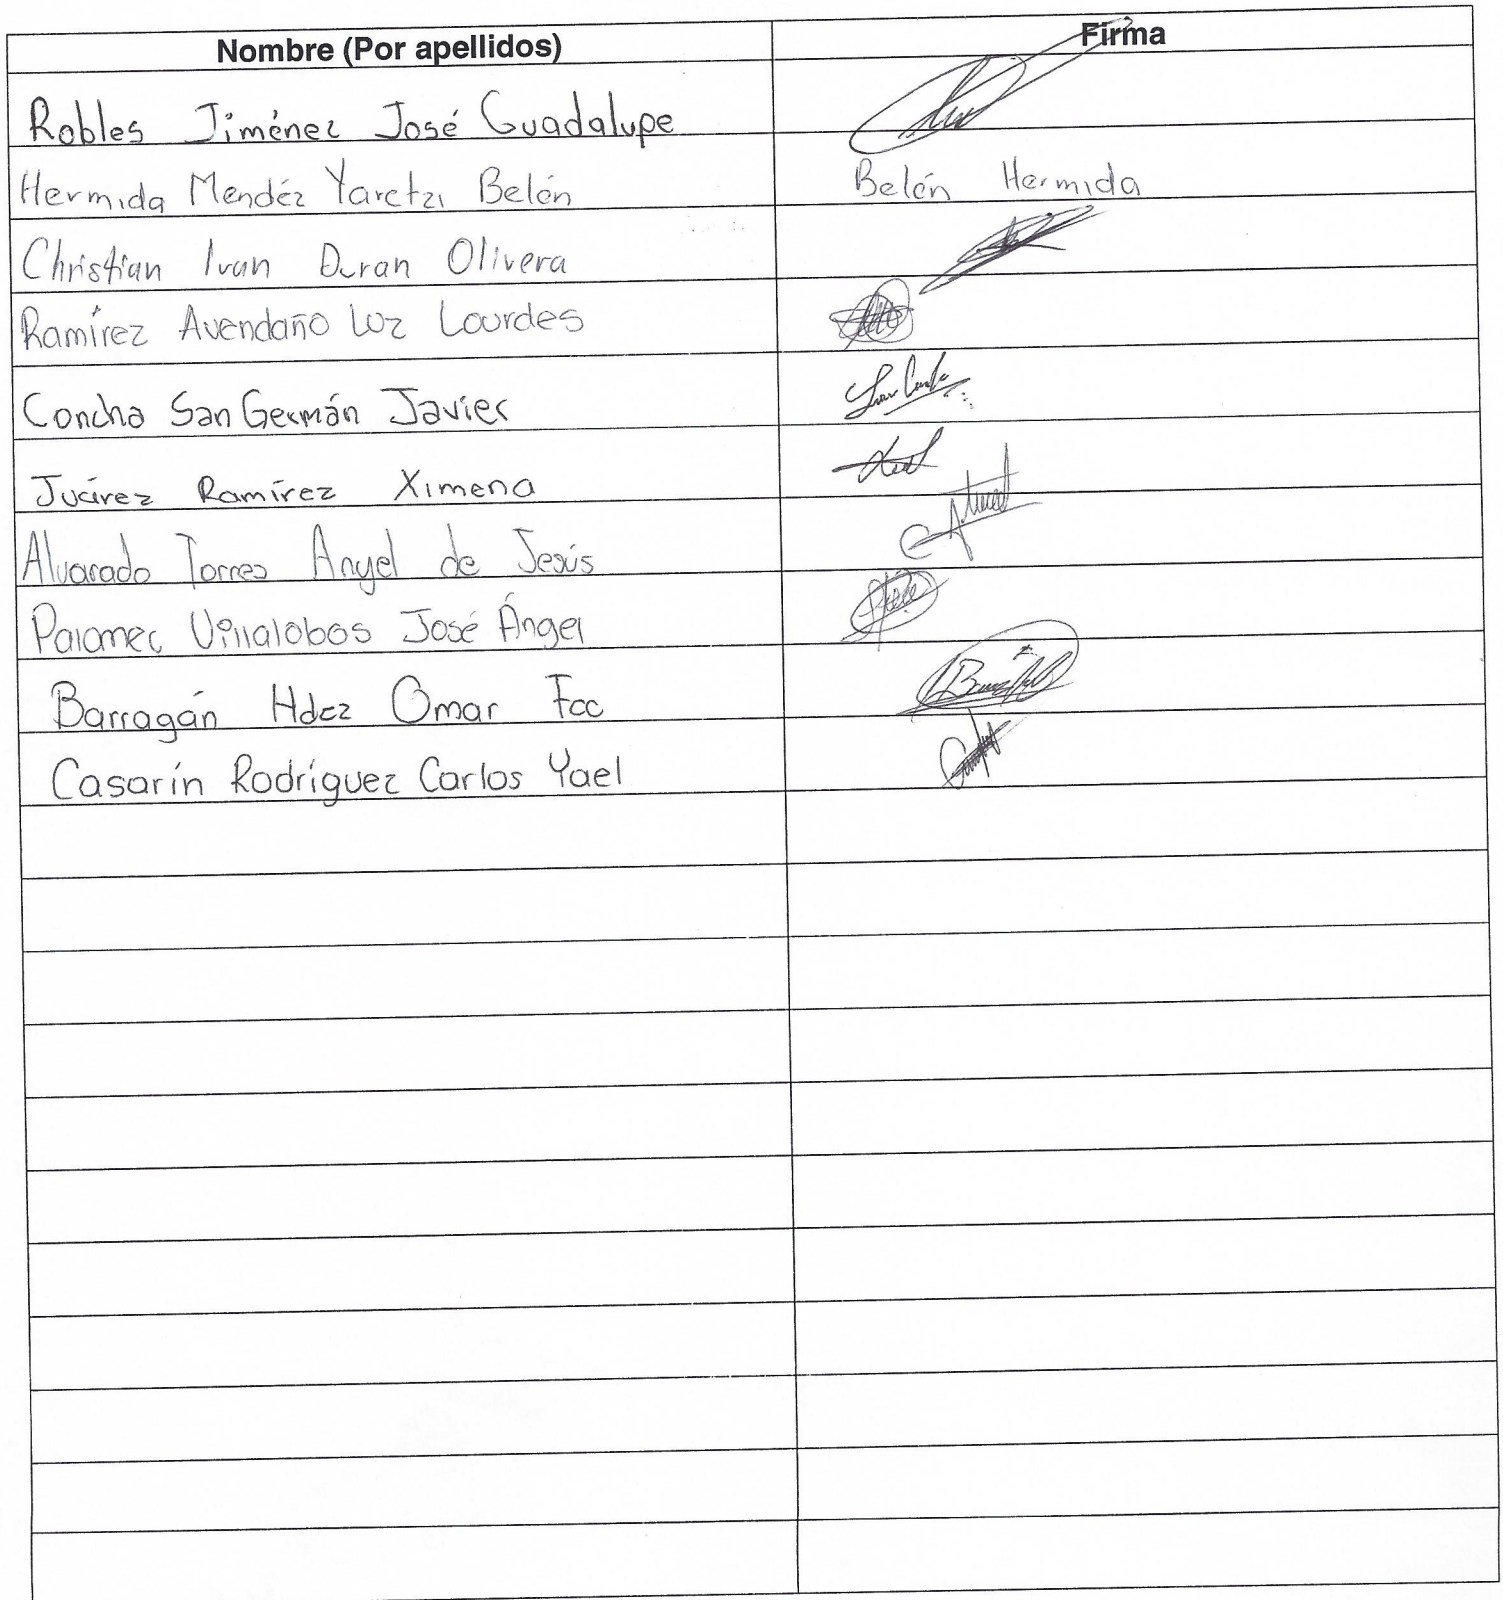 Nombre (Por apellidos) Firma
Robles Jiménez José Guadalupe
Hermida Mendéz Yaretzi Belén Belén Hermida
Christian Ivan Duran Olivera
Ramírez Avendaño Luz Lourdes
Concha San Germán Javier
Juárez Ramírez Ximena
Alvarado Torres Angel de Jesús
Palomec Villalobos José Ángel
Barragán Hdez Omar Fco
Casarín Rodríguez Carlos Yael